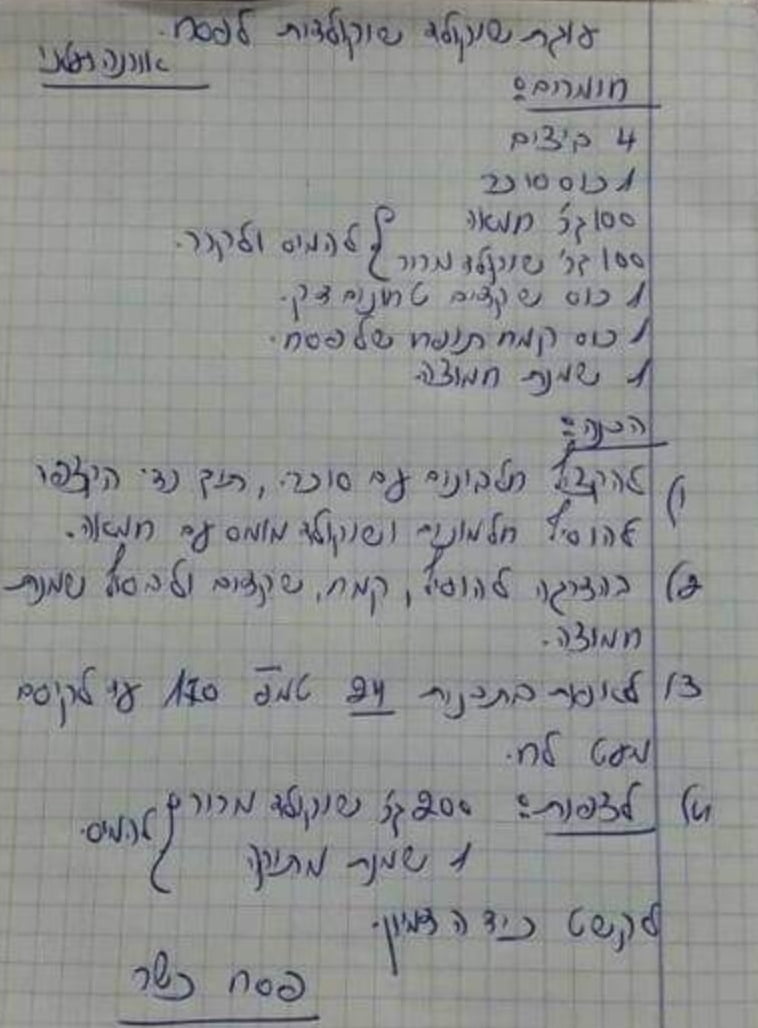 עוגת שוקולד שוקולדית לפסח.
אורנה
חומרים:
4 ביצים
1 כוס סוכר
100 גר' חמאה
100 גר' שוקולד מריר } להמיס ולקרר.
1 כוס שקדים טחונים דק.
1 כוס קמח תופח של פסח.
1 שמנת חמוצה.
הכנה:
1) להקציף חלבונים עם סוכר, תוך כדי הקצפה
להוסיף חלמונים ושוקולד מומס עם חמאה.
2) בהדרגה להוסיף, קמח, שקדים ולבסוף שמנת
חמוצה.
3) לאפות בתבנית 24 טמפ 170 עד לקיסם
מעט לח.
4) לצפות: 200 גר' שוקולד מריר
1 שמנת מתוקה } להמיס.
לקשט כיד הדמיון.
פסח כשר